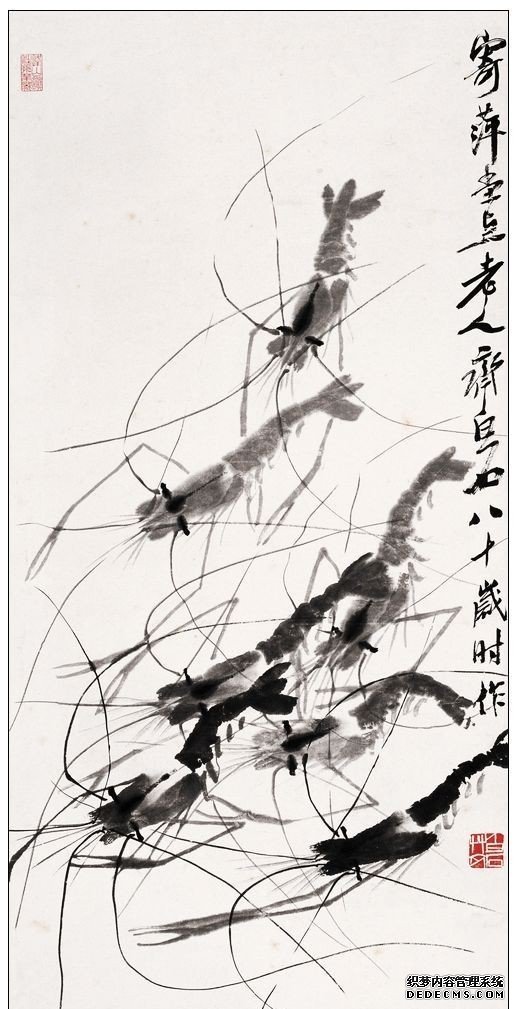 寄萍堂上老人齊白石八十歲时作
织梦内容管理系统
DEDECMS.COM